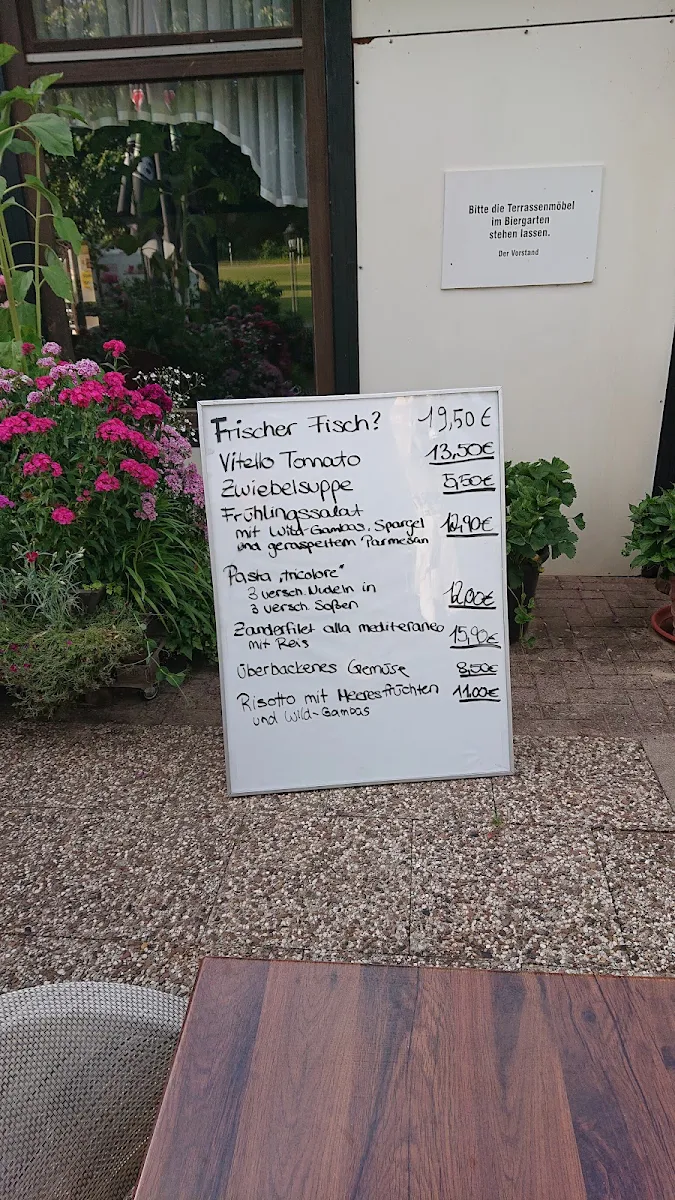 Bitte die Terrassenmöbel
im Biergarten
stehen lassen.
Der Vorstand
Frischer Fisch? 19,50 €
Vitello Tonnato 13,50€
Zwiebelsuppe 5,50€
Frühlingssalat
mit Wild-Gambas, Spargel 12,90€
und geraspeltem Parmesan
Pasta „tricolore“
3 versch. Nudeln in 12,00€
3 versch. Soßen
Zanderfilet alla mediteraneo 15,90€
mit Reis
Überbackenes Gemüse 8,50€
Risotto mit Meeresfrüchten 11.00€
und Wild-Gambas